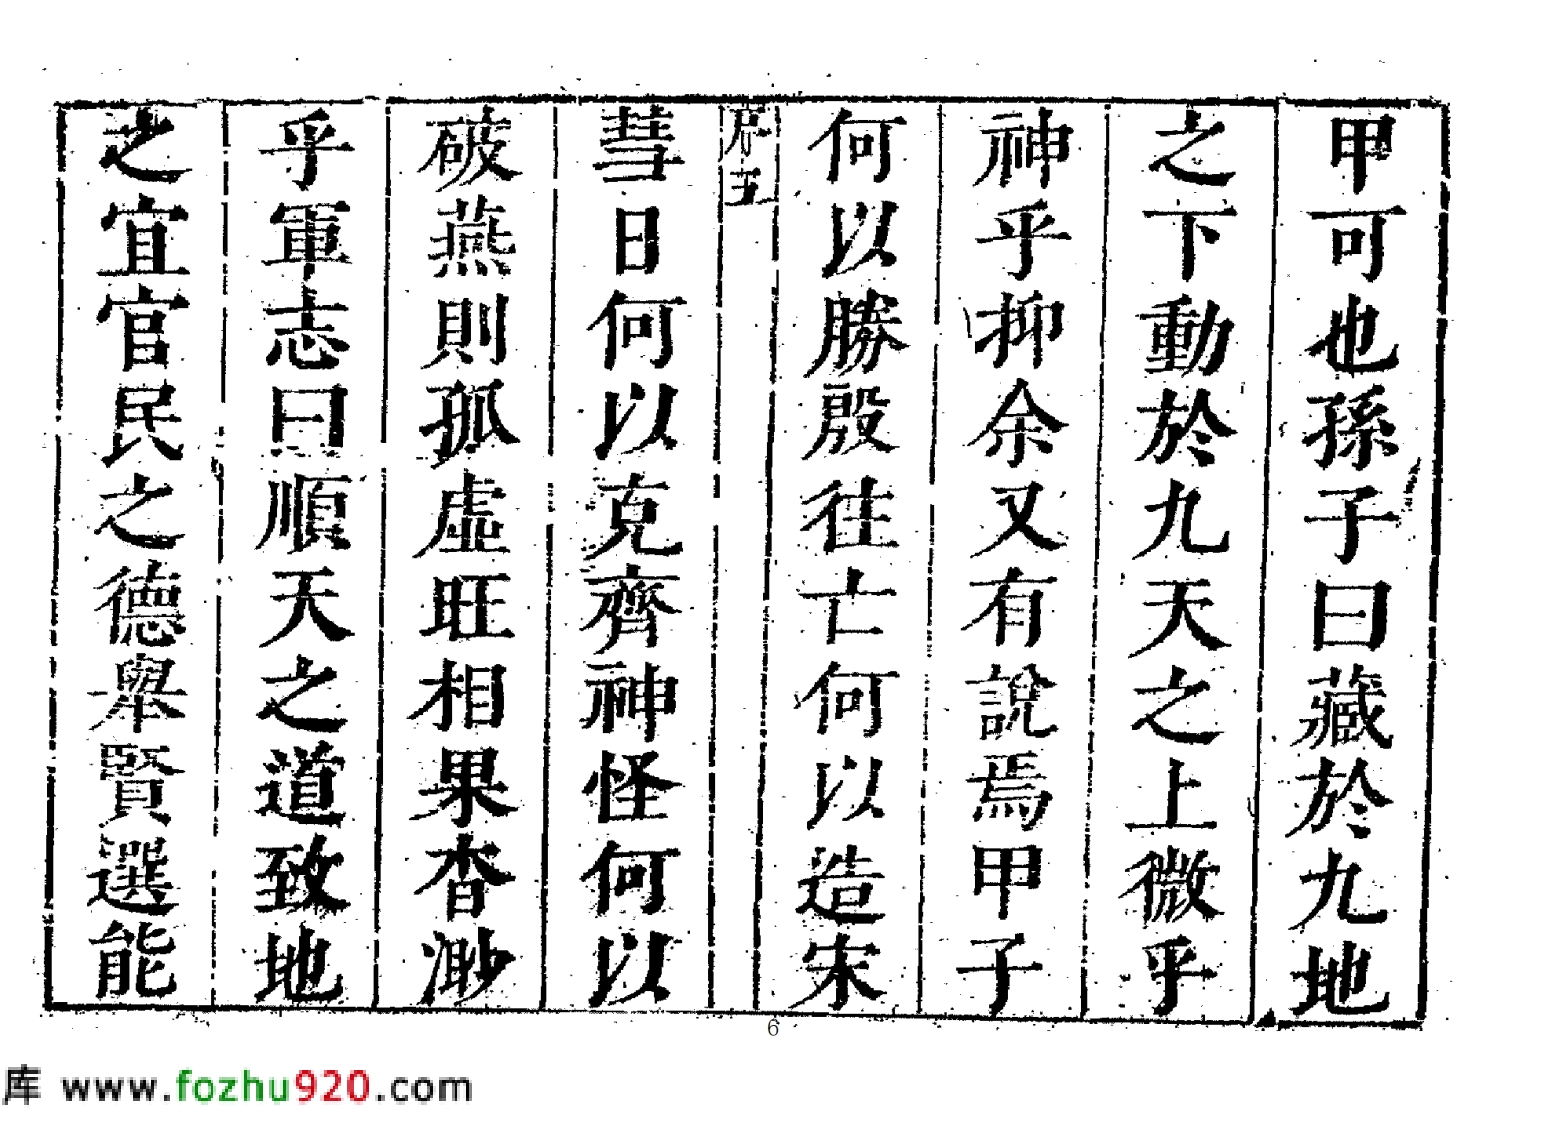 甲可也孫子曰藏於九地
之下動於九天之上微乎
神乎抑余又有說焉甲子
何以勝殷往亡何以造宋
序五
彗日何以克齊神怪何以
破燕則孤虛旺相果杳渺
乎軍志曰順天之道致地
之宜官民之德舉賢選能
6
库 www.fozhu920.com